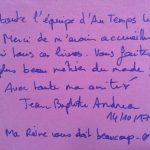 toute l'équipe d'Au Temps L
Merci de m'avoir accueilli
si tous ces livres. Vous faites
plus beau métier du monde !
Avec toute mon amitié
Jean-Baptiste Andrea
14/10
Ma Reine vous doit beaucoup